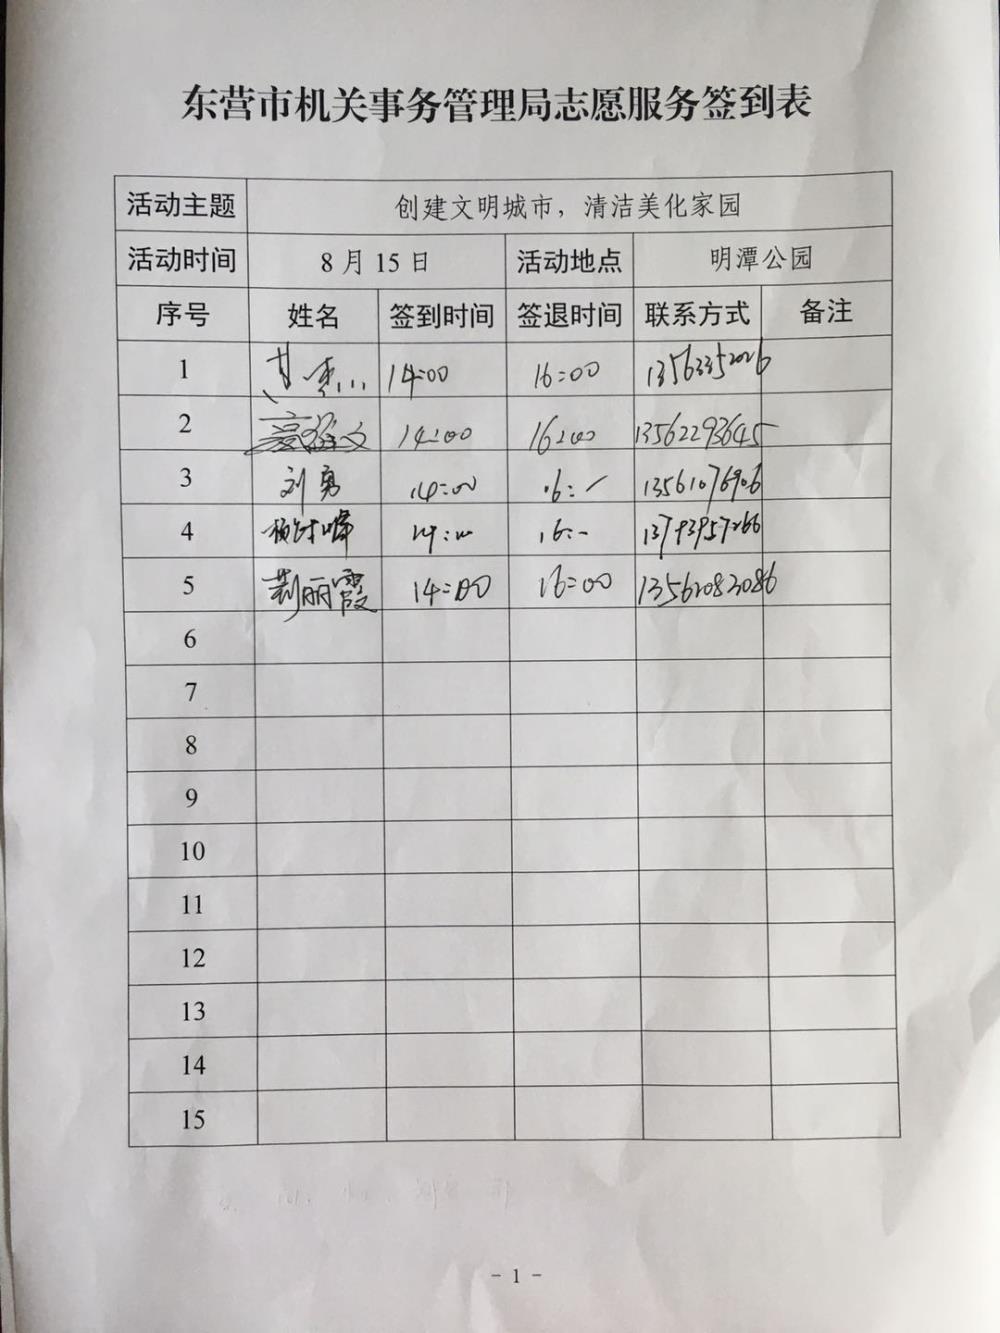 东营市机关事务管理局志愿服务签到表
活动主题 创建文明城市，清洁美化家园
活动时间 8 月 15 日 活动地点 明潭公园
序号 姓名 签到时间 签退时间 联系方式 备注
1 14:00 16:00 13563352026
2 14:00 16:00 13562293645
3 刘勇 14:00 16:- 13561076906
4 14:00 16:- 13793957266
5 荆丽霞 14:00 16:00 13562083086
6
7
8
9
10
11
12
13
14
15
- 1 -